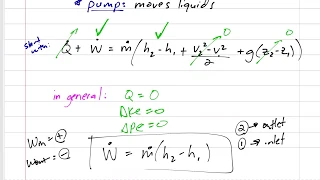 * pumps moves liquids
start with: Q̇ + Ẇ = ṁ(h₂-h₁ + v₂²-v₁²/2 + g(z₂-z₁))
0 0 0
in general: Q = 0
ΔKE = 0
ΔPE = 0
Win = +
Wout = -
Ẇ = ṁ(h₂-h₁)
② → outlet
① → inlet